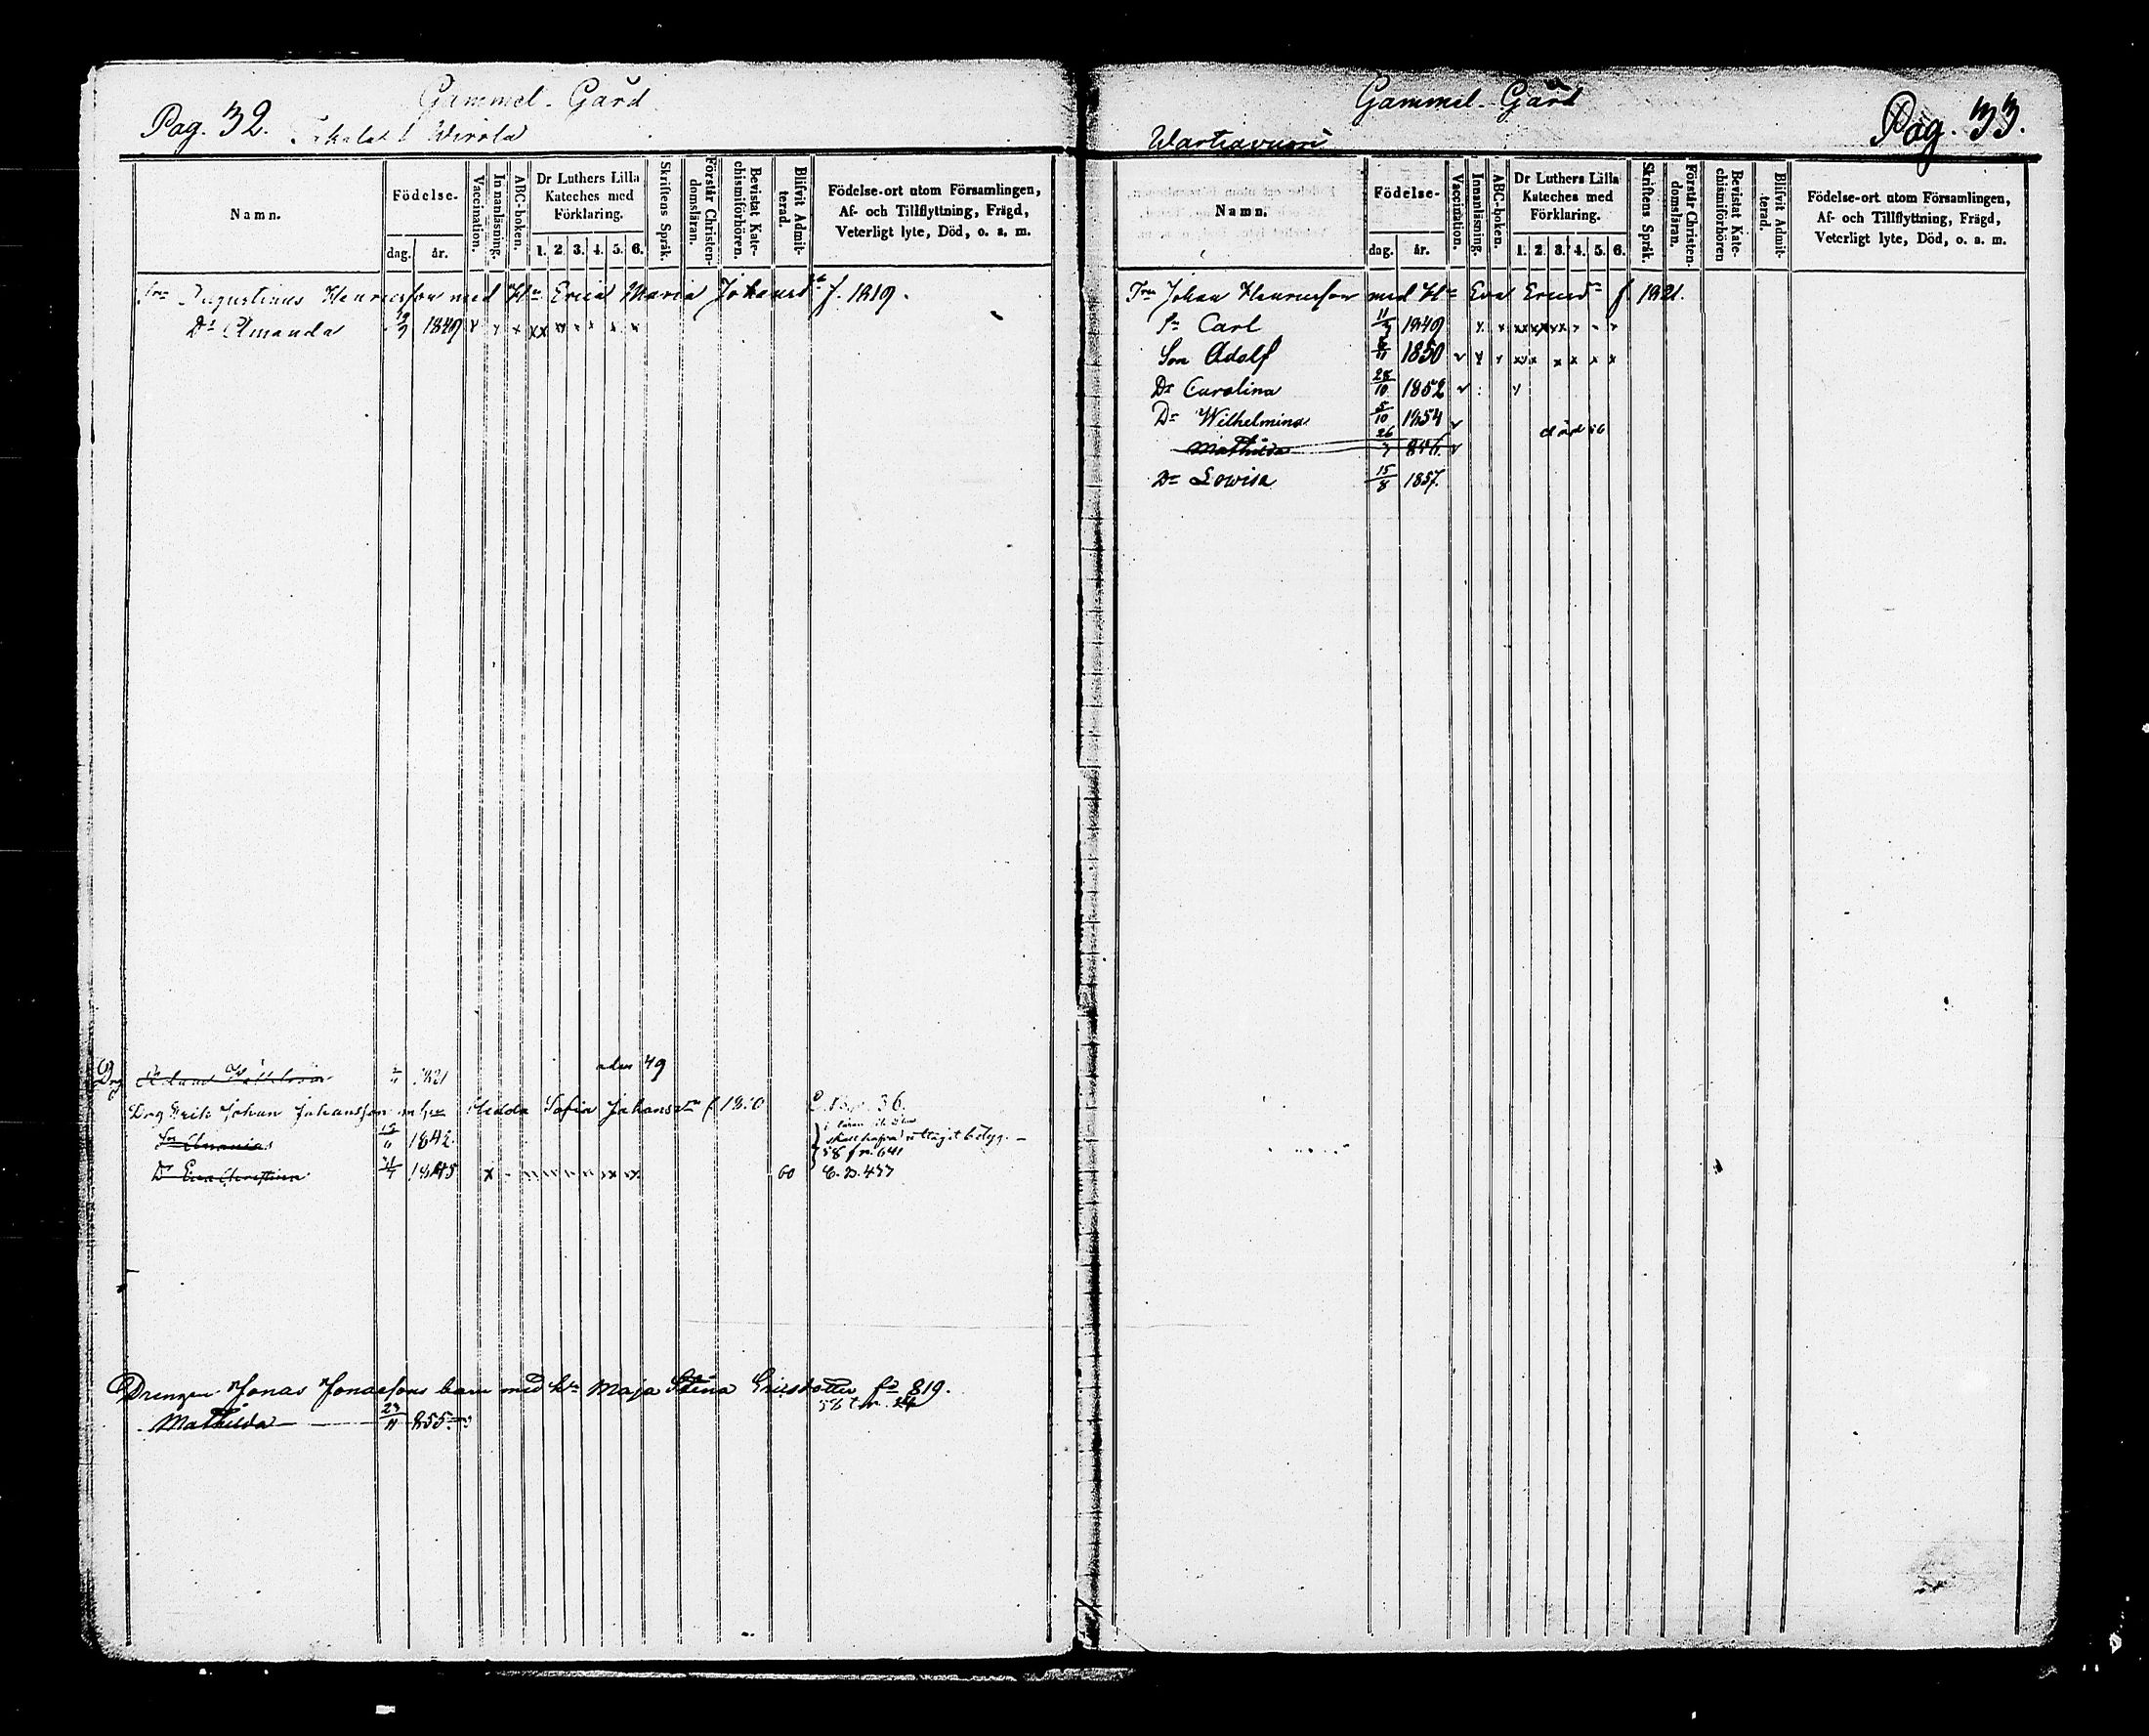 Pag. 32.
Gammel-Gård
Wirola
Namn.
Födelse.
dag.
år.
Vaccination.
Innanläsning.
ABC-boken.
Dr Luthers Lilla Kateches med Förklaring.
1. 2. 3. 4. 5. 6.
Skriftens Språk.
Förstår Christendomsläran.
Bevistat Katechismiförhören.
Blifvit Admitterad.
Födelse-ort utom Församlingen,
Af- och Tillflyttning, Frägd,
Veterligt lyte, Död, o. s. m.
Augustinus Henricsson med H. Erica Maria Johansd f. 1819.
Dr Amanda 1849 x x x xx x x x x x
49
Drg Erik Johan Johansson Hedda Sofia Johansd f 36.
Sn Ananias 15/11 1842.
58 fr. 641
Dr Eva Christina 1845 x 60 C.B. 477
Drengen Jonas Jonassons barn med h. Maja Stina Ericsdotter f. 819.
Mathilda 23/11 855
Gammel-Gård
Pag. 33.
Namn.
Födelse-
dag.
år.
Vaccination.
Innanläsning.
ABC-boken.
Dr Luthers Lilla Kateches med Förklaring.
1. 2. 3. 4. 5. 6.
Skriftens Språk.
Förstår Christendomsläran.
Bevistat Katechismiförhören
Blifvit Admitterad.
Födelse-ort utom Församlingen,
Af- och Tillflyttning, Frägd,
Veterligt lyte, Död, o. s. m.
Johan Henricsson med H. Eva Ericsd f 1821.
Sn Carl 1849
Son Adolf 1850
Dr Carolina 28/10 1852
Dr Wilhelmina 5/10 1854
Mathilda 26 död 56
Dr Lowisa 15/8 1857.